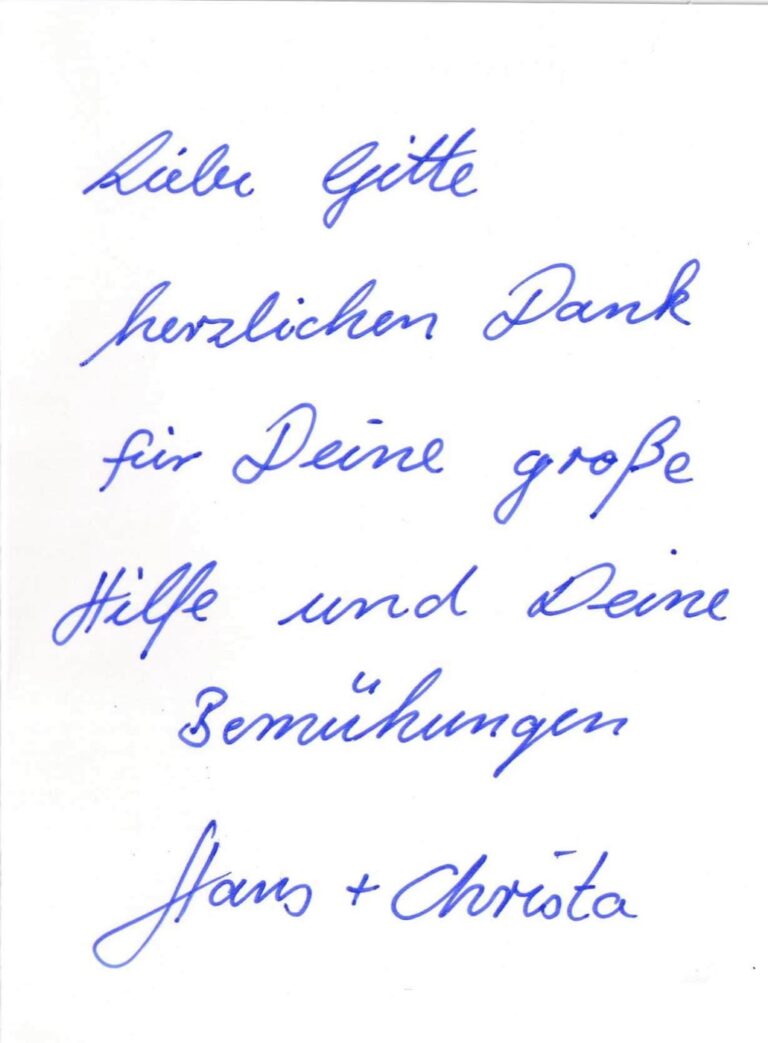 Liebe Gitte
herzlichen Dank
für Deine große
Hilfe und Deine
Bemühungen
Hans + Christa